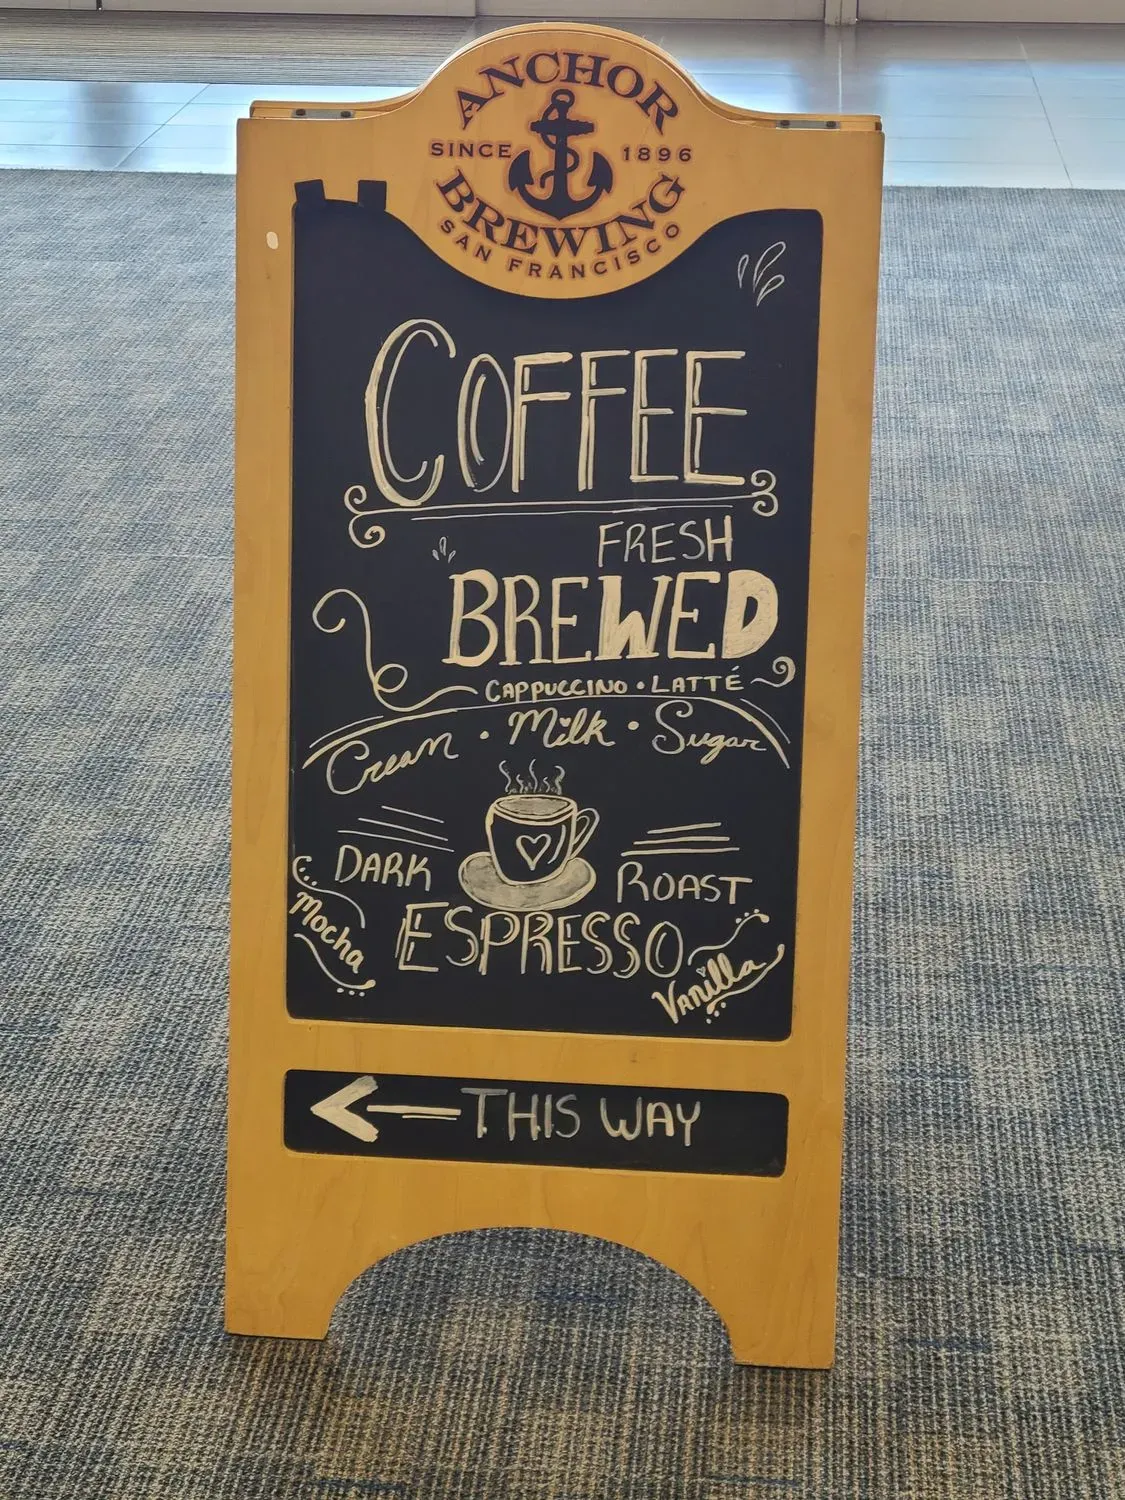 ANCHOR
SINCE 1896
BREWING
SAN FRANCISCO
COFFEE
FRESH
BREWED
CAPPUCCINO • LATTÉ
Cream • Milk • Sugar
DARK ROAST
Mocha
ESPRESSO
Vanilla
THIS WAY